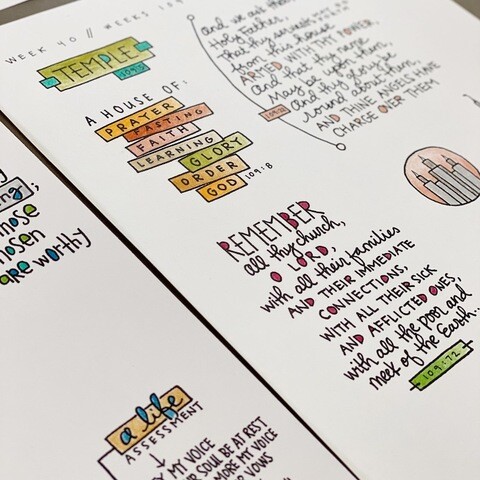 WEEK 40 // WEEKS 19
TEMPLE
109
A HOUSE OF:
PRAYER
FASTING
FAITH
LEARNING
GLORY
ORDER
GOD
109:8
and we ask thee
Holy Father,
that thy servants
from this house
ARMED WITH THY POWER,
and that thy name
may be upon them,
and thy glory be
round about them,
AND THINE ANGELS HAVE
CHARGE OVER THEM
109:22
REMEMBER
all thy church,
O LORD,
with all their families
AND THEIR IMMEDIATE
CONNECTIONS,
WITH ALL THEIR SICK
AND AFFLICTED ONES,
with all the poor and
meek of the earth..
109:72
those
hosen
are worthy
a life
ASSESSMENT
MY VOICE
SOUL BE AT REST
MORE MY VOICE
VOWS